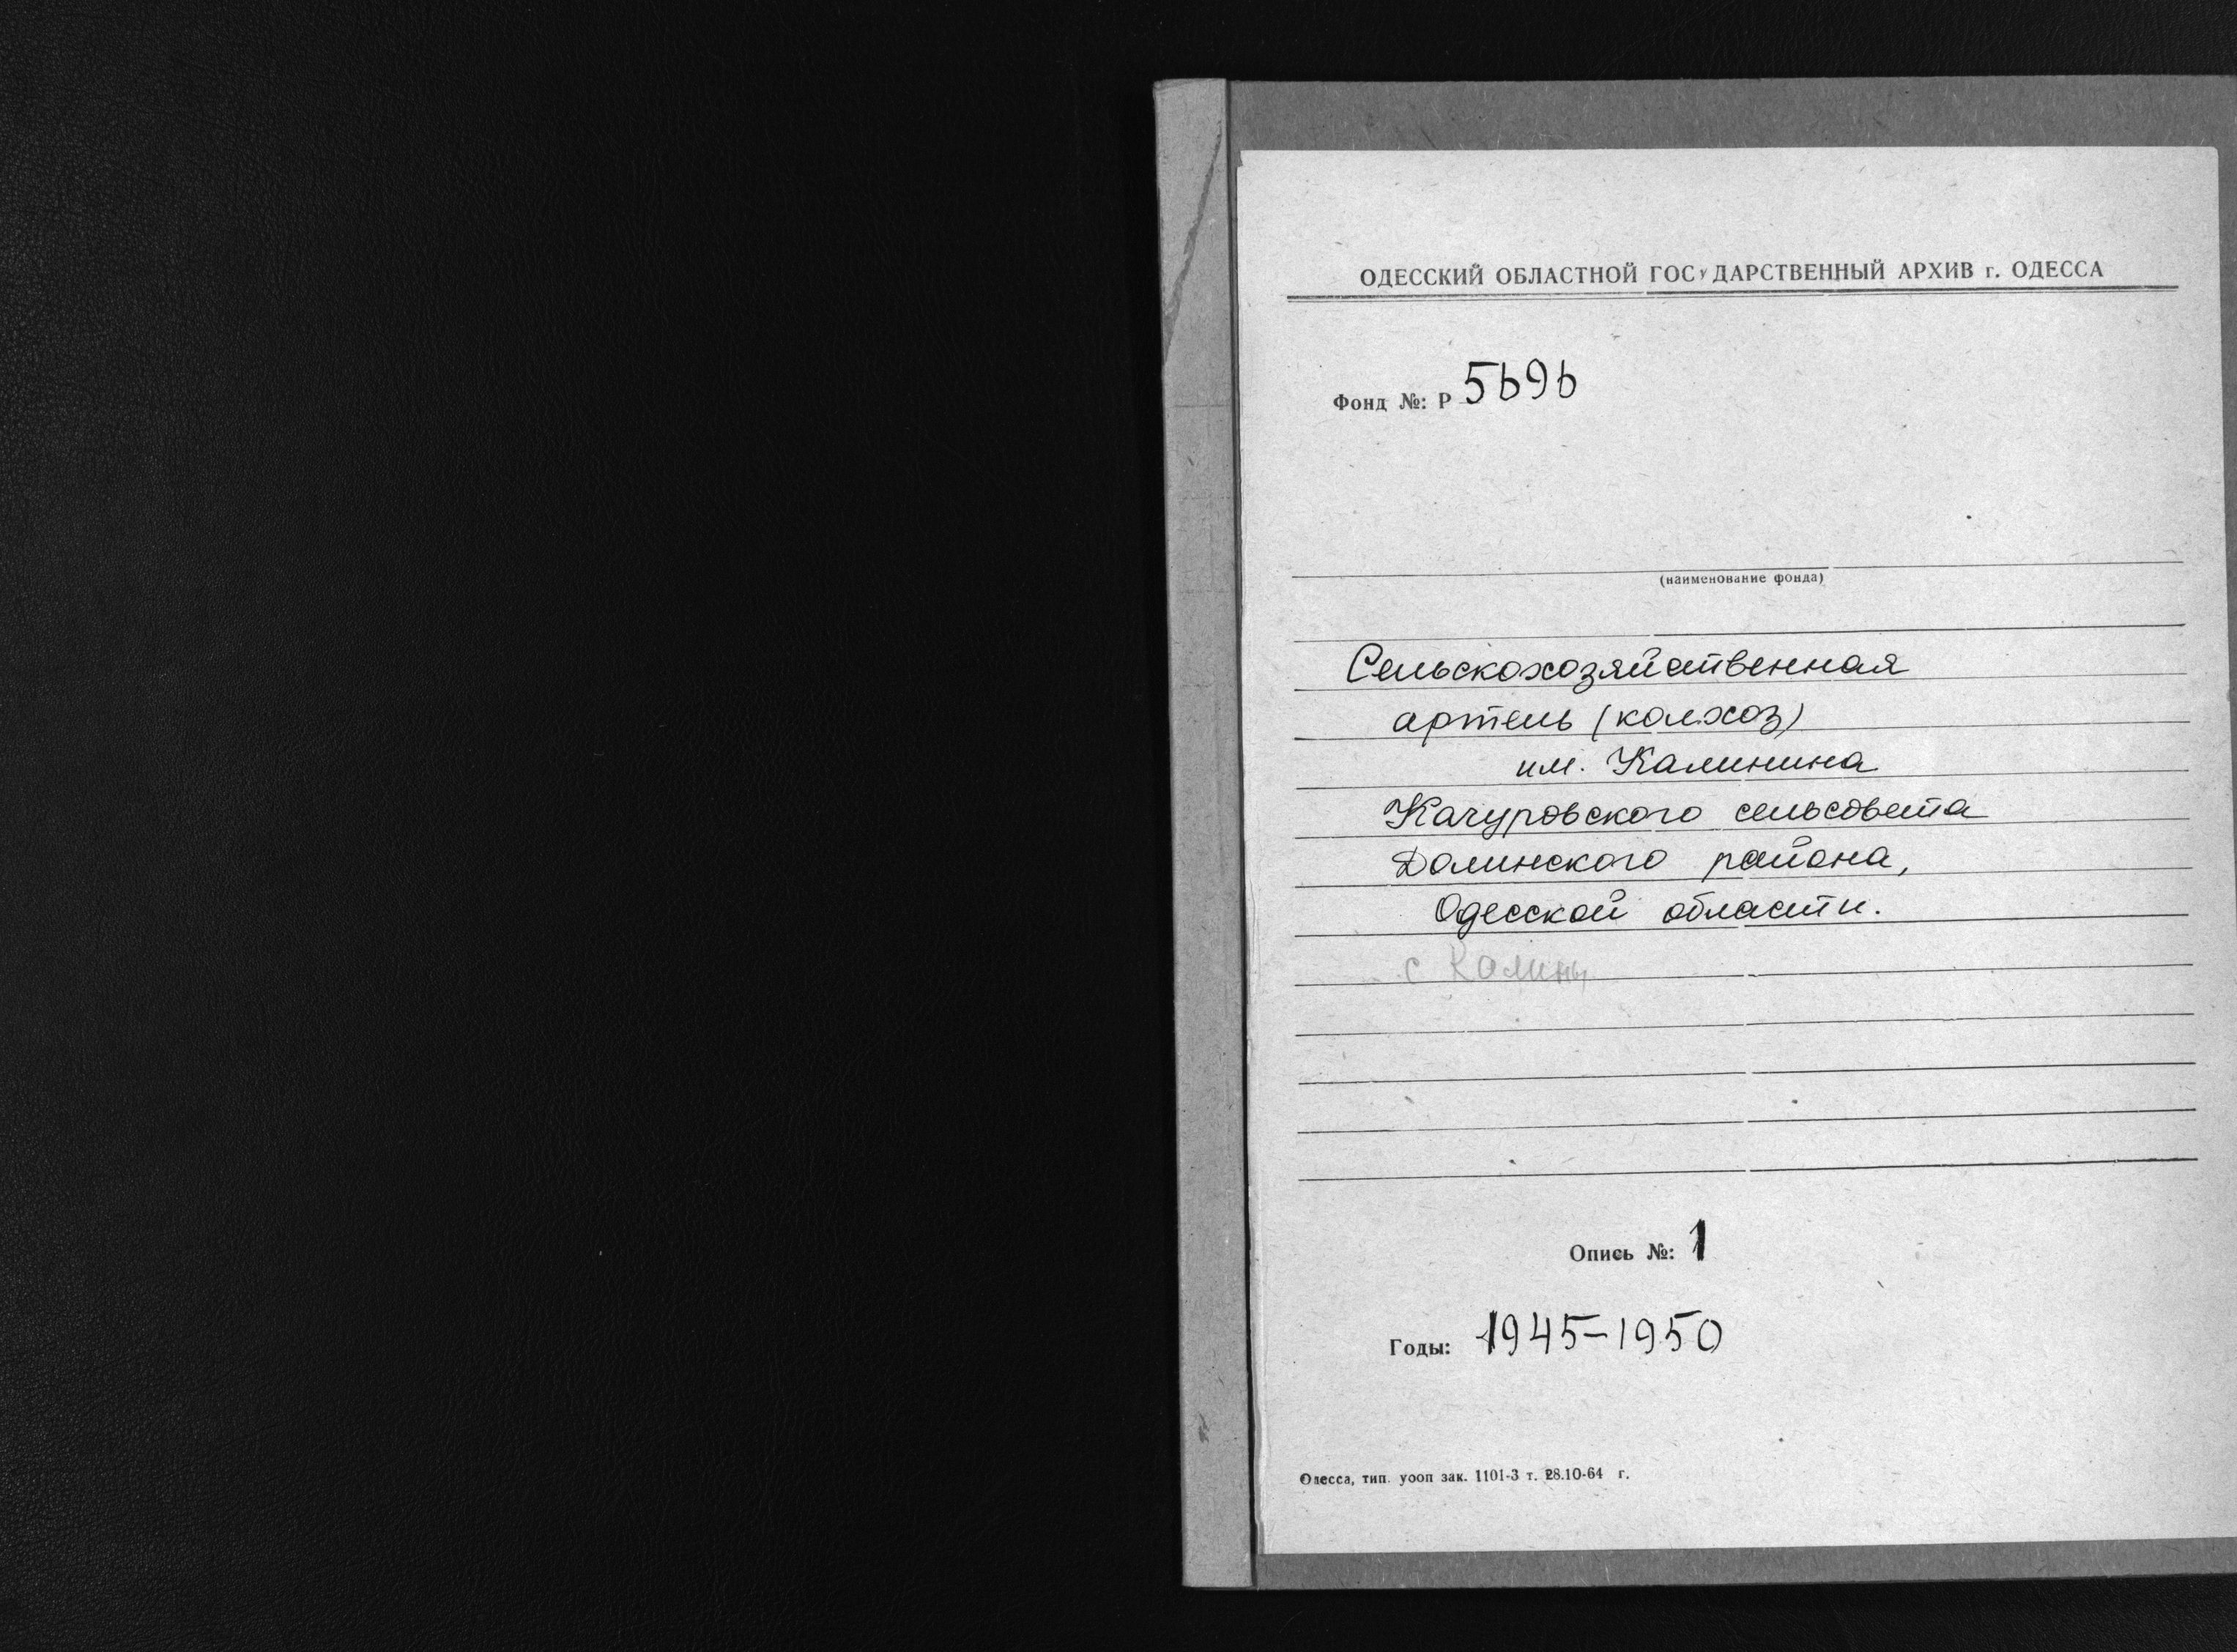 ОДЕССКИЙ ОБЛАСТНОЙ ГОСУДАРСТВЕННЫЙ АРХИВ г. ОДЕССА
Фонд №: Р 5696
(наименование фонда)
Сельскохозяйственная
артель (колхоз)
им. Калинина
Качуровского сельсовета
Долинского района,
Одесской области.
с Калины
Опись №: 1
Годы: 1945-1950
Одесса, тип. уооп зак. 1101-3 т. 28.10-64 г.